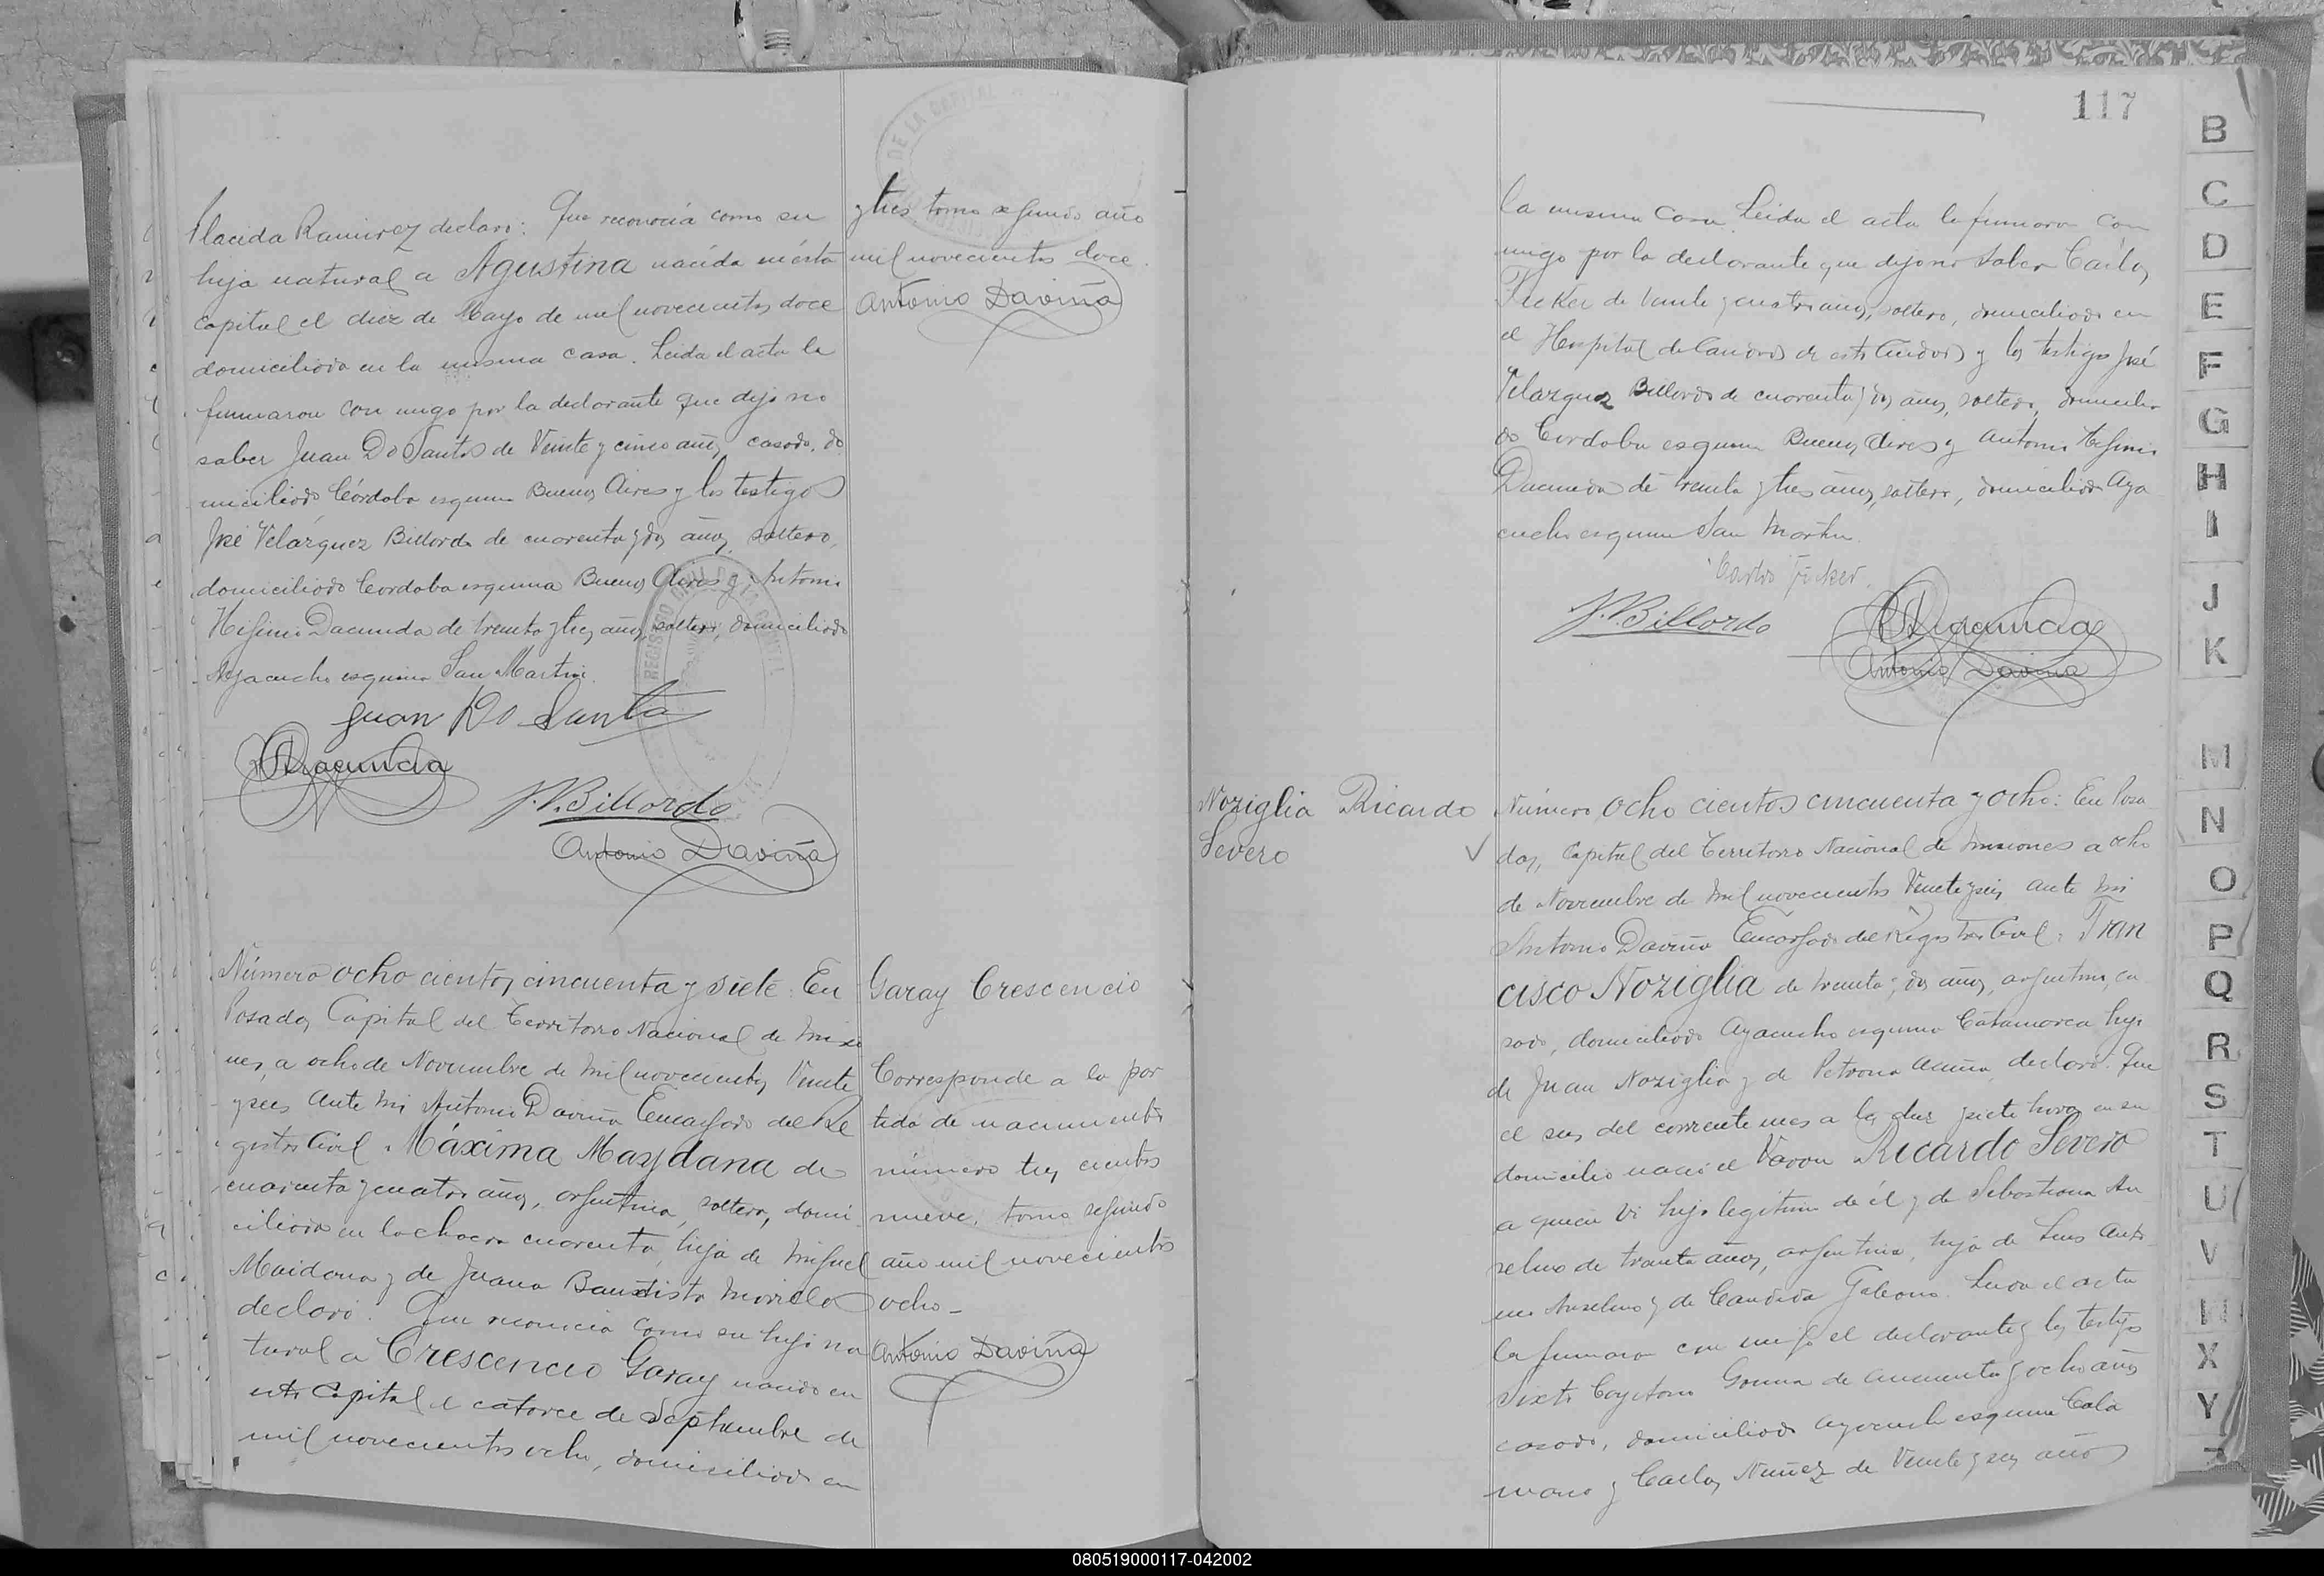 Placida Ramirez declaró: Que reconocía como su
hija natural a Agustina nacida en ésta
capital el diez de Mayo de mil novecientos doce
domiciliada en la misma casa. Leida el acta la
firmaron con migo por la declarante que dijo no
saber Juan Do Santos de Veinte y cinco años, casado, do
miciliado Córdoba esquina Buenos Aires y los testigos
José Velázquez Billordo de cuarenta y dos años, soltero,
domiciliado Cordoba esquina Buenos Aires y Antonio
Higinio Dacunda de treinta y tres años, soltero, domiciliado
Ayacucho esquina San Martin.
Juan Do Santo
Dacunda
J.V. Billordo
Antonio Daviña
y tres tomo segundo año
mil novecientos doce.
Antonio Daviña
Número ocho cientos cincuenta y siete: En
Posadas, Capital del Territorio Nacional de Misio
nes, a ocho de Noviembre de mil novecientos Veinte
y seis Ante mi Antonio Daviña Encargado del Re
gistro Civil. Máxima Maydana de
cuarenta y cuatro años, argentina, soltera, domi
ciliada en la chacra cuarenta, hija de Miguel
Maidana y de Juana Bautista
declaró: Que reconocia como su hijo na
tural a Crescencio Garay nacido en
esta Capital el catorce de Septiembre de
mil novecientos ocho, domiciliado en
Garay Crescencio
Corresponde a la par
tida de nacimiento
número tres cientos
nueve, tomo segundo
año mil novecientos
ocho-
Antonio Daviña
117
la misma casa. Leida el acta la firmaron con
migo por la declarante que dijo no saber Carlos
Ficker de Veinte y cuatro años, soltero, domiciliado en
el Hospital de Caridad de esta Ciudad y los testigos José
Velazquez Billordo de cuarenta y dos años, soltero, domicilia
do Cordoba esquina Buenos Aires y Antonio Higinio
Dacunda de treinta y tres años, soltero, domiciliado Aya
cucho esquina San Martin.
Carlos Ficker.
J.V. Billordo
Dacunda
Antonio Daviña
Noziglia Ricardo
Severo
Número ocho cientos cincuenta y ocho: En Posa
das, Capital del Territorio Nacional de Misiones a ocho
de Noviembre de Mil novecientos Veinte y seis, ante mi
Antonio Daviña Encargado del Registro Civil: Fran
cisco Noziglia de treinta y dos años, argentino, ca
sado, domiciliado Ayacucho esquina Catamarca hijo
de Juan Noziglia y de Petrona Acuña, declaró: Que
el seis del corriente mes a las diez y siete horas en su
domicilio nació el Varon Ricardo Severo
a quien vi hijo legitimo de él y de Sebastiana An
selmo de treinta años, argentina, hija de Luis Anto
nio Anselmo y de Candida Galeano. Leida el acta
la firmaron con migo el declarante y los testigos
Sixto Cayetano de cincuenta y ocho años
casado, domiciliado Ayacucho esquina Cata
marca y Carlos Nuñez de Veinte y seis años
B
C
D
E
F
G
H
I
J
K
M
N
O
P
Q
R
S
T
U
V
X
Y
080519000117-042002